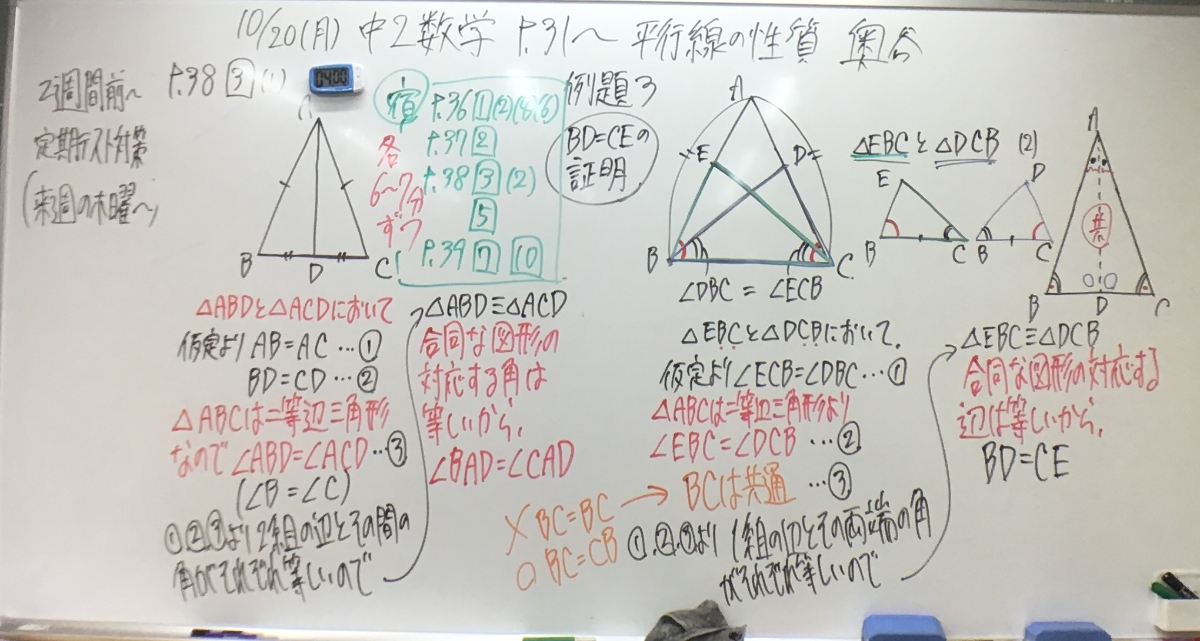 10/20(月) 中2数学 P.31〜 平行線の性質 奥谷
2週間前〜
定期テスト対策
(来週の木曜〜)
P.38 3 (1)
04:00
A
B
D
C
宿
P.36 1 (2)(4)(6)
P.37 2
P.38 3 (2)
5
P.39 7 10
各
6〜7分
ずつ
例題3
BD=CEの
証明
A
E
D
B
C
∠DBC = ∠ECB
△EBCと△DCB (2)
E
B
C
D
B
C
A
共
B
D
C
△ABDと△ACDにおいて
仮定より AB=AC …①
BD=CD …②
△ABCは二等辺三角形
なので ∠ABD=∠ACD…③
(∠B=∠C)
①②③より 2組の辺とその間の
角がそれぞれ等しいので
△ABD≡△ACD
合同な図形の
対応する角は
等しいから,
∠BAD=∠CAD
△EBCと△DCBにおいて,
仮定より∠ECB=∠DBC…①
△ABCは二等辺三角形より
∠EBC=∠DCB …②
BCは共通 …③
× BC=BC
○ BC=CB
①,②,③より 1組の辺とその両端の角
がそれぞれ等しいので
△EBC≡△DCB
合同な図形の対応する
辺は等しいから,
BD=CE